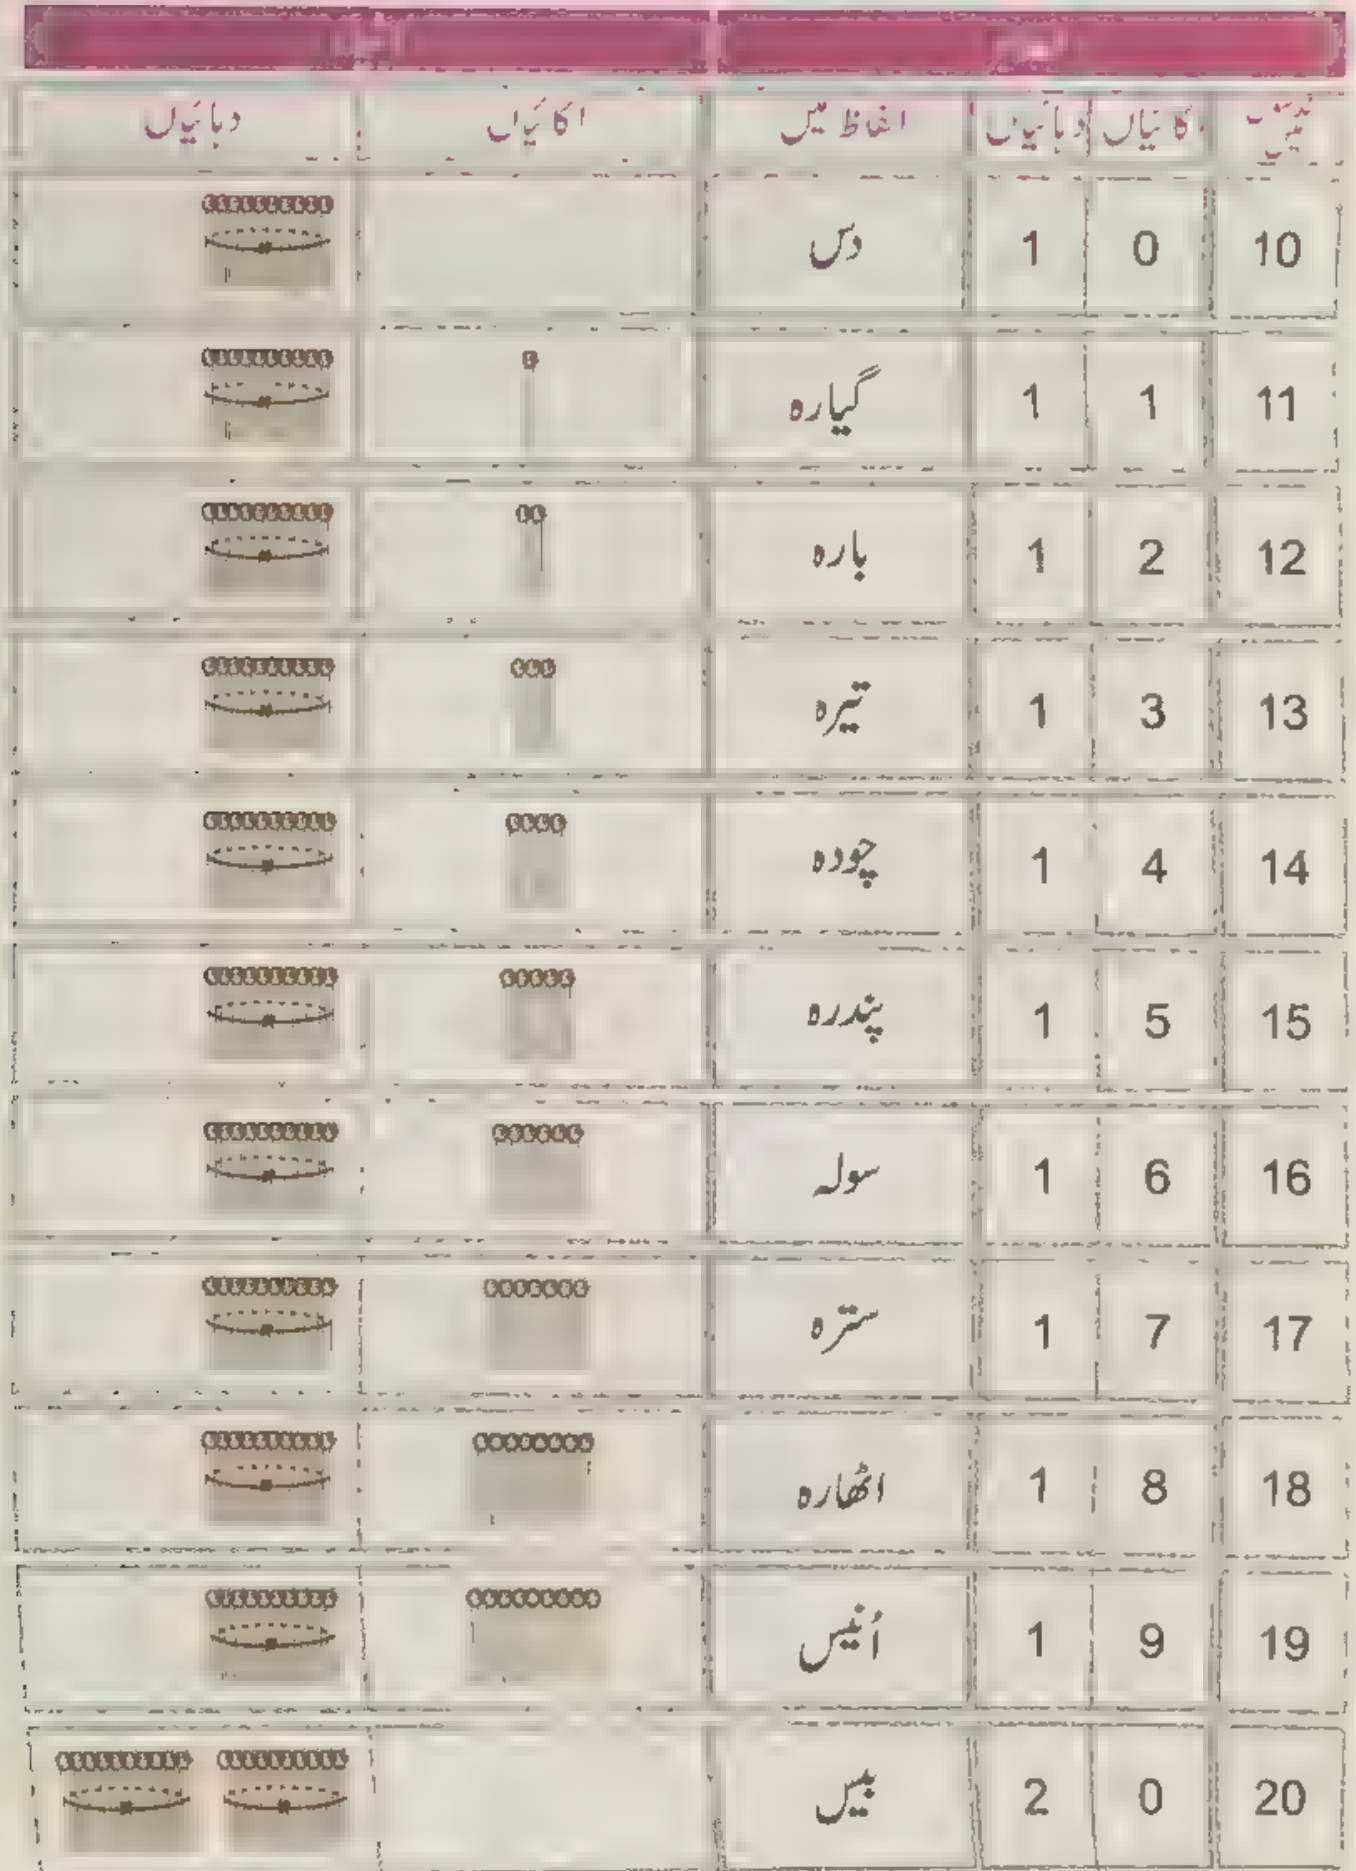 اکائیاں دہائیاں الفاظ میں اکائیاں دہائیاں
10 0 1 دس
11 1 1 گیارہ
12 2 1 بارہ
13 3 1 تیرہ
14 4 1 چودہ
15 5 1 پندرہ
16 6 1 سولہ
17 7 1 سترہ
18 8 1 اٹھارہ
19 9 1 اُنیس
20 0 2 بیس